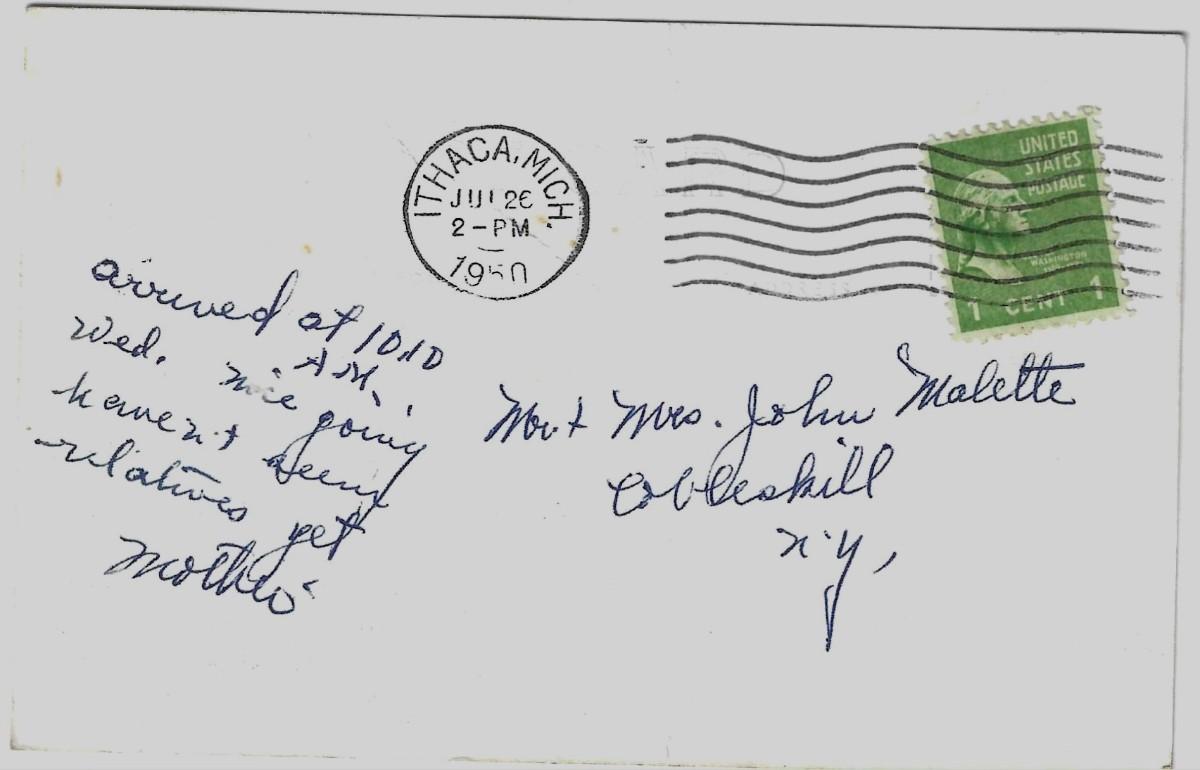 ITHACA, MICH.
JUL 26
2-PM
1950
UNITED
STATES
POSTAGE
WASHINGTON
1 CENT 1
arrived at 10,10
A.M.
Wed. nice going
haven't seen
relatives yet
Mother
Mr & Mrs. John Malette
Cobleskill
N.Y,